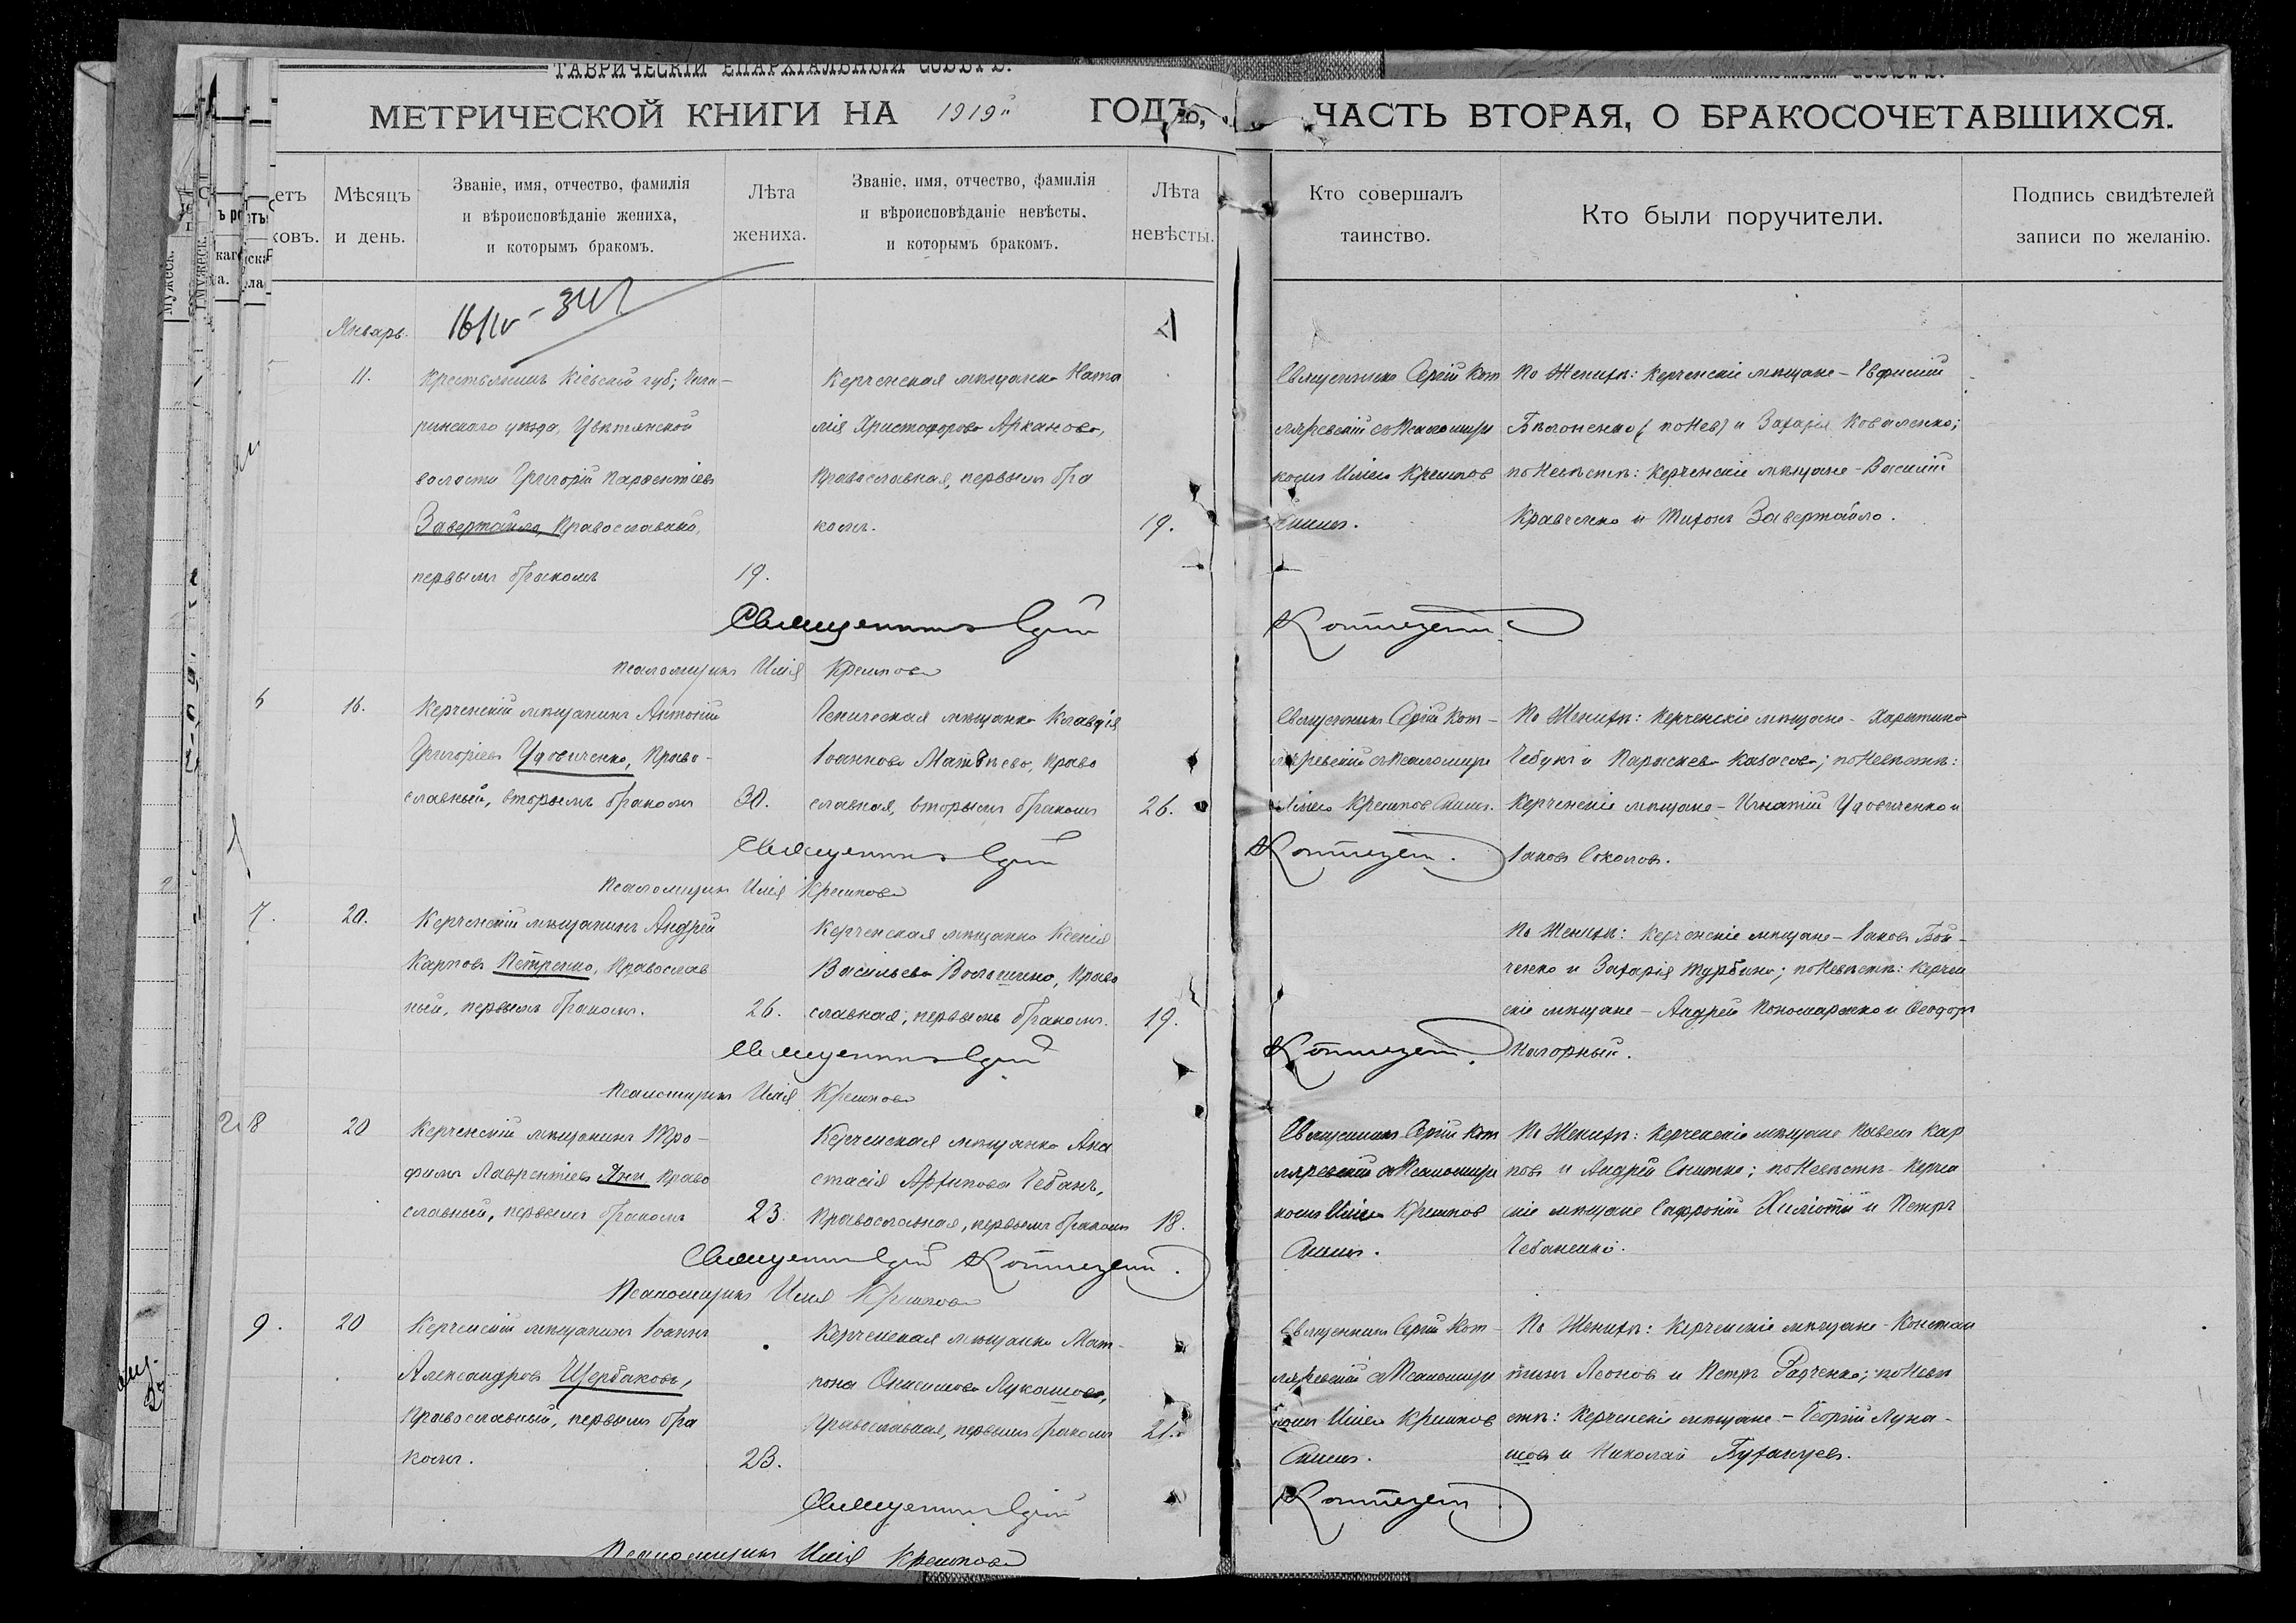 ТАВРИЧЕСКІЙ ЕПАРХІАЛЬНЫЙ СОВѢТЪ.
МЕТРИЧЕСКОЙ КНИГИ НА 1919й ГОДЪ,
ЧАСТЬ ВТОРАЯ, О БРАКОСОЧЕТАВШИХСЯ.
етъ
ковъ.
Мѣсяцъ
и день.
Званіе, имя, отчество, фамилія
и вѣроисповѣданіе жениха,
и которымъ бракомъ.
Лѣта
жениха.
Званіе, имя, отчество, фамилія
и вѣроисповѣданіе невѣсты,
и которымъ бракомъ.
Лѣта
невѣсты.
Кто совершалъ
таинство.
Кто были поручители.
Подпись свидѣтелей
записи по желанію.
Январь.
11.
Крестьянинъ Кіевской губ; Чиги-
ринскаго уѣзда, Цвѣтянской
волости Григорій Парфентіевъ
Завертайло, Православный,
первымъ бракомъ
19.
Керченская мѣщанка Ната
лія Христофорова Арканова,
Православная, первымъ бра
комъ.
19.
Священникъ Сергій Кот
ляревскій съ Псаломщи
комъ Иліею Крешков
скимъ.
По Женихѣ: Керченскіе мѣщане - Евфимій
Бѣлоненко (по Нев) и Захарія Коваленко;
по Невѣстѣ: Керченскіе мѣщане - Василій
Кравченко и Тихонъ Завертайло.
Священникъ Сергій
Псаломщикъ Илія
6
16.
Керченскій мѣщанинъ Антоній
Григоріевъ Удовиченко, Право-
славный, вторымъ бракомъ
30.
Геническая мѣщанка Клавдія
Іоаннова Матвѣева, Право
славная, вторымъ бракомъ
26.
Священникъ Сергій Кот-
ляревскій съ Псаломщи
Иліею Крешков скимъ.
По Женихѣ: Керченскіе мѣщане - Харитинъ
Чебукъ и Параскева; по Невѣстѣ:
Керченскіе мѣщане - Игнатій Удовиченко и
Іаковъ Соколовъ.
Священникъ Сергій
Псаломщикъ Илія
7.
20.
Керченскій мѣщанинъ Андрей
Карповъ Петренко, Православ
ный, первымъ бракомъ.
26.
Керченская мѣщанка Ксенія
Васильева Волошина, Право
славная, первымъ бракомъ.
19.
По Женихѣ: Керченскіе мѣщане - Іаковъ Бой-
ченко и Захарія Турбинъ; по Невѣстѣ: Керчен
скіе мѣщане - Андрей Пономаренко и Ѳеодоръ
Нагорный.
Священникъ Сергій
Псаломщикъ Илія
8
20
Керченскій мѣщанинъ Тро-
фимъ Лаврентіевъ Яни, Право
славный, первымъ бракомъ
23.
Керченская мѣщанка Ана
стасія Архипова Чебанъ,
Православная, первымъ бракомъ
18.
Священникъ Сергій Кот
ляревскій съ Псаломщи
комъ Иліею Крешков
скимъ.
По Женихѣ: Керченскіе мѣщане Павелъ Кар
повъ и Андрей; по Невѣстѣ - Керчен
скіе мѣщане Софроній и Петръ
Чебаненко.
Священникъ Сергій
Псаломщикъ Илія
9.
20
Керченскій мѣщанинъ Іоаннъ
Александровъ Щербаковъ,
Православный, первымъ бра
комъ.
23.
Керченская мѣщанка Мат-
рона Онисимова Лукашова,
Православная, первымъ бракомъ
21.
Священникъ Сергій Кот-
ляревскій съ Псаломщи
комъ Иліею Крешков
скимъ.
По Женихѣ: Керченскіе мѣщане - Констан
тинъ Леоновъ и Петръ Радченко; по Невѣ
стѣ: Керченскіе мѣщане - Георгій Лука-
шовъ и Николай Буханцевъ.
Священникъ Сергій
Псаломщикъ Илія